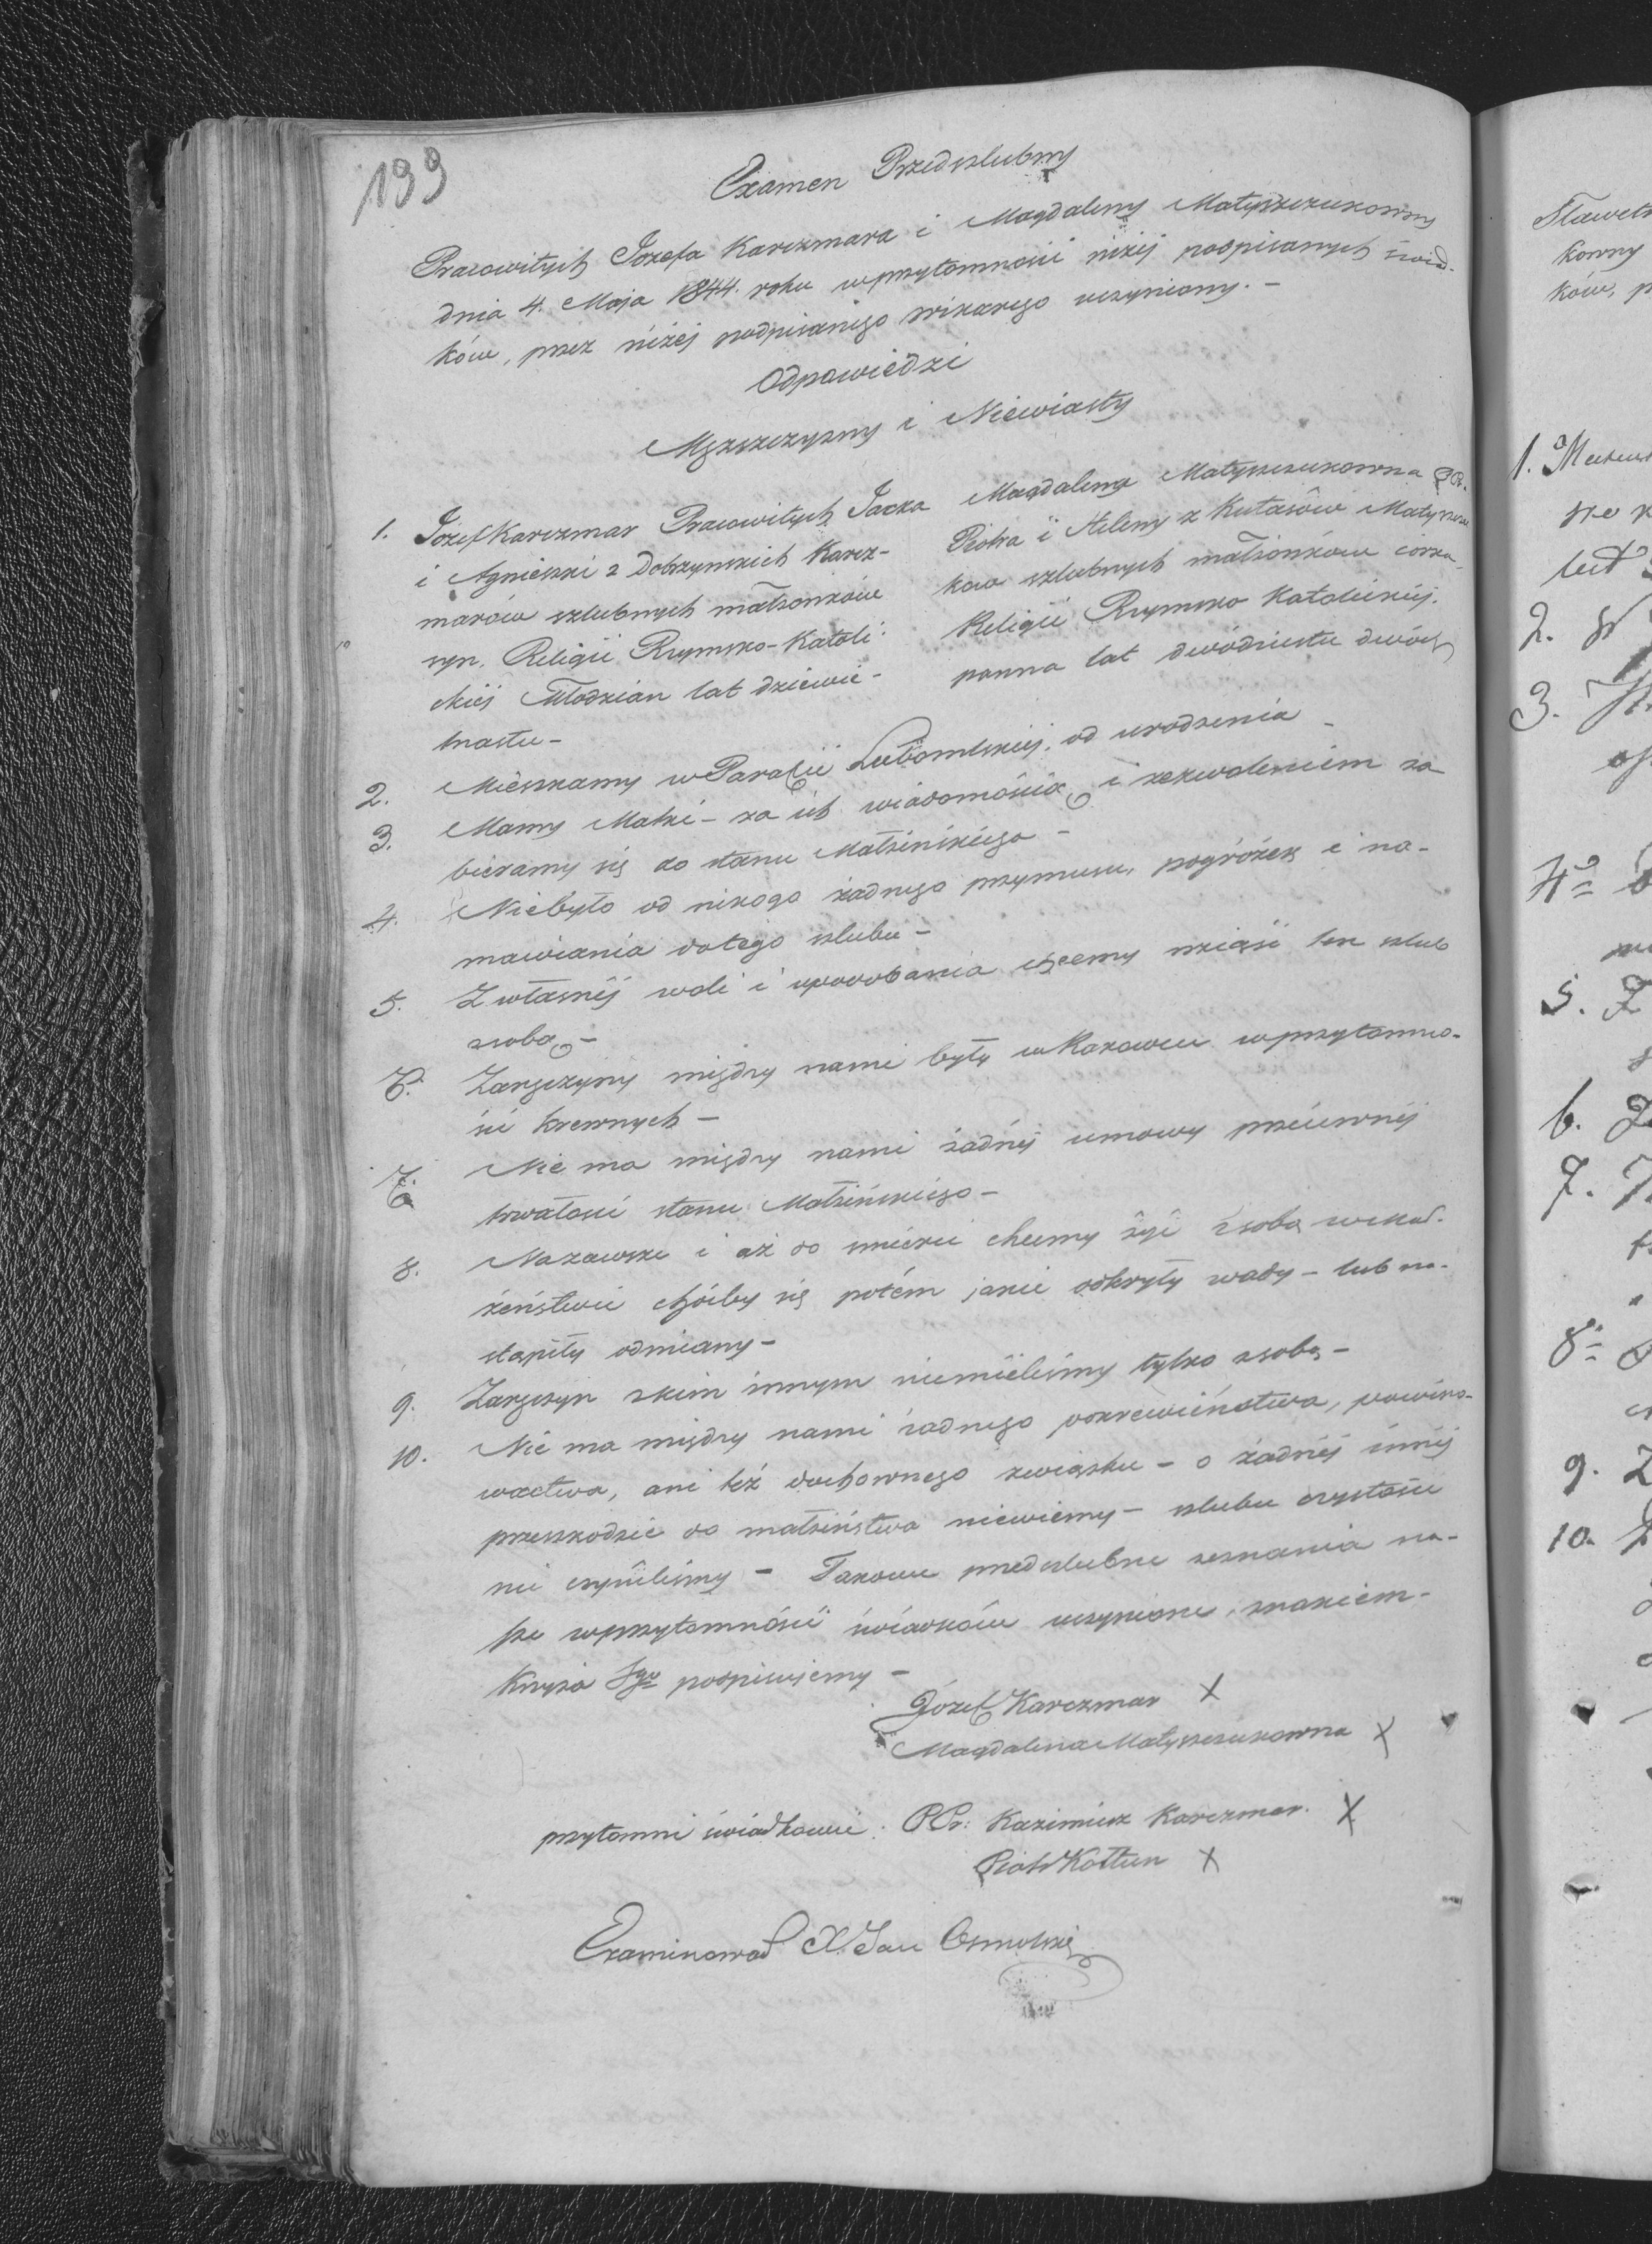 199
Examen Przedszlubny
Pracowitych Jozefa Karczmara i Magdaleny Matyszczukowny
dnia 4. Maja 1844. roku w przytomności niżej podpisanych świad-
ków, przez niżej podpisanego wikarego uczyniony. -
Odpowiedzi
Męszczyzny i Niewiasty
1. Józef Karczmar Pracowitych Jacka
i Agnieszki z Dobrzynskich Karcz-
marów szlubnych małżonków
syn, Religii Rzymsko-Katoli-
ckiej Młodzian lat dziewię-
tnastu -
Magdalena Matyszczukowna PPr.
Piotra i Heleny z Kutasów Matyszczu
kow szlubnych małżonków córka,
Religii Rzymsko Katolickiej.
panna lat dwódziestu dwóch
2. Mieszkamy w Parafii Lubomlskiej, od urodzenia -
3. Mamy Matki - za ich wiadomością i zezwoleniem za
bieramy się do stanu Małżeńskiego -
4. Niebyło od nikogo żadnego przymusu, pogróżek i na-
mawiania do tego szlubu -
5. Z własnéj woli i upodobania chcemy wziąść ten szlub
z sobą -
6. Zaręczyny między nami były w Karowcu w przytomno-
ści krewnych -
7. Nie ma między nami żadnéj umowy przeciwnéj
trwałości stanu Małżeńskiego -
8. Nazawsze i aż do śmierci chcemy żyć z sobą w mał-
żeństwie chóćby się potém jakie odkryły wady - lub na-
stąpiły odmiany -
9. Zaręczyn z kim innym niemieliśmy tylko z sobą -
10. Nie ma między nami żadnego pokrewieństwa, powino-
wactwa, ani też duchownego związku - o żadnéj innéj
przeszkodzie do małżeństwa niewiemy - szlubu czystości
nie czyniliśmy - Takowe przedszlubne zeznania na-
sze w przytomności świadków uczynione, znakiem
Krzyża Sgo podpisujemy -
Józef Karczmar X
Magdalena Matyszczukowna X
przytomni świadkowie: PPr: Kazimierz Karczmar. X
Piotr Kołtun X
Examinował X Jan Osmolski